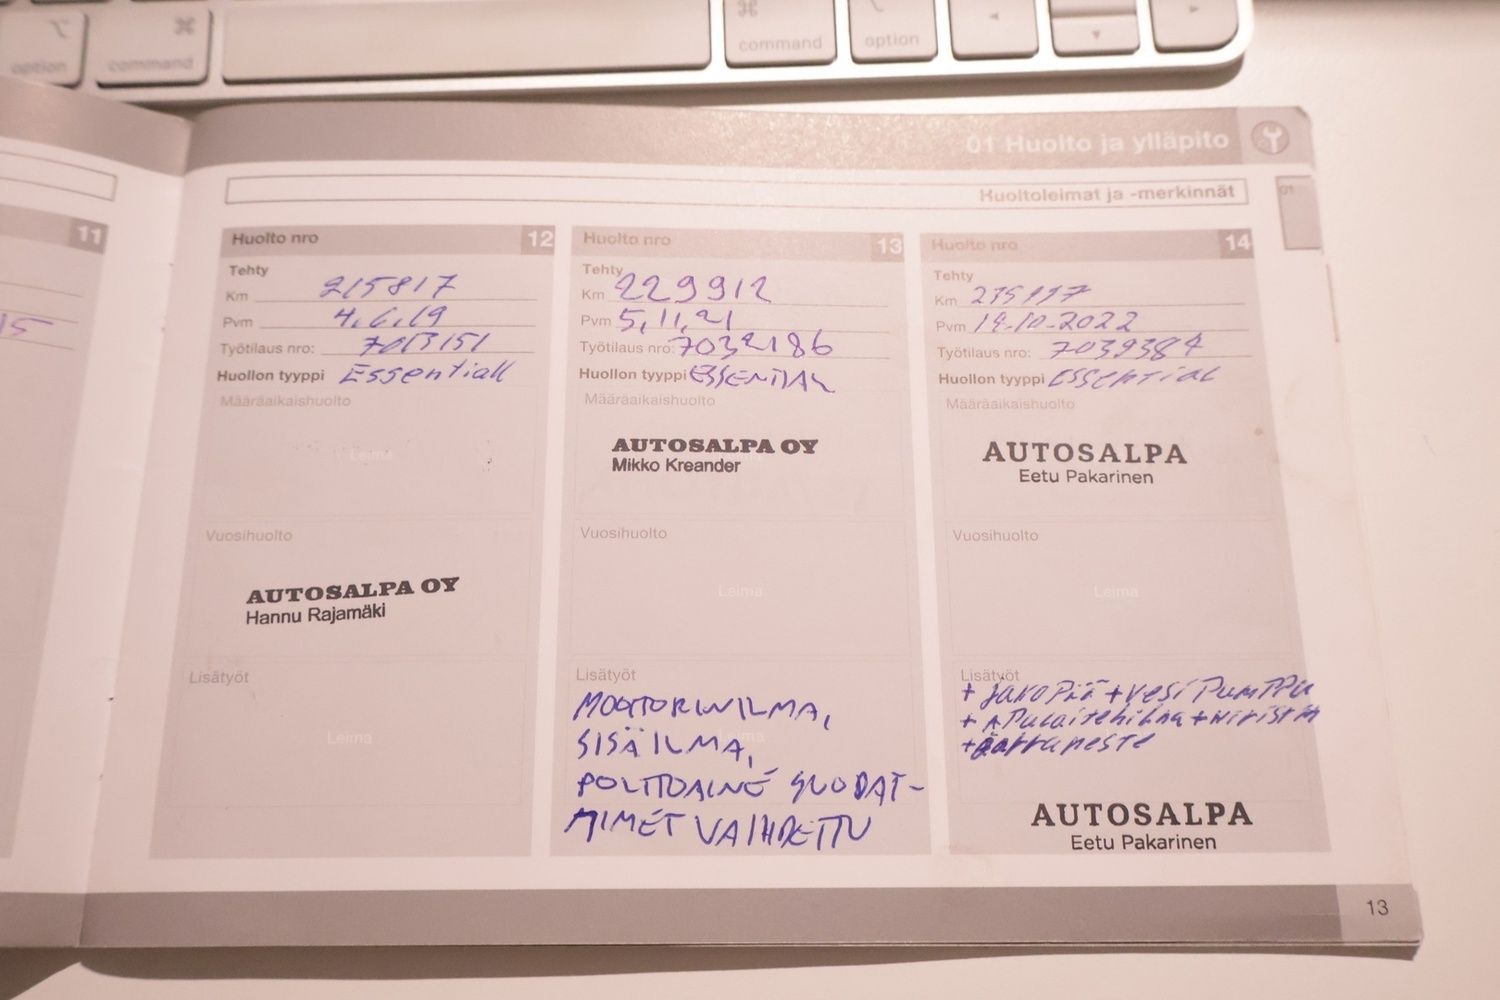 option
command
command
option
01 Huolto ja ylläpito
Huoltoleimat ja -merkinnät
01
11
15
Huolto nro 12
Tehty
Km 215817
Pvm 4.6.19
Työtilaus nro:
Huollon tyyppi Essentiall
Määräaikaishuolto
Leima
Vuosihuolto
AUTOSALPA OY
Hannu Rajamäki
Lisätyöt
Leima
Huolto nro 13
Tehty
Km 229912
Pvm 5,11,21
Työtilaus nro: 7032186
Huollon tyyppi ESSENTIAL
Määräaikaishuolto
AUTOSALPA OY
Mikko Kreander
Vuosihuolto
Leima
Lisätyöt
MOOTTORINILMA,
SISÄILMA,
POLTTOAINE SUODAT-
TIMET VAIHDETTU
Huolto nro 14
Tehty
Km
Pvm 14-10-2022
Työtilaus nro: 7039384
Huollon tyyppi Essential
Määräaikaishuolto
AUTOSALPA
Eetu Pakarinen
Vuosihuolto
Leima
Lisätyöt
+ jakoPää + vesiPumPPu
+ APulaitehihna + Kiristin
+ Jarruneste
AUTOSALPA
Eetu Pakarinen
13